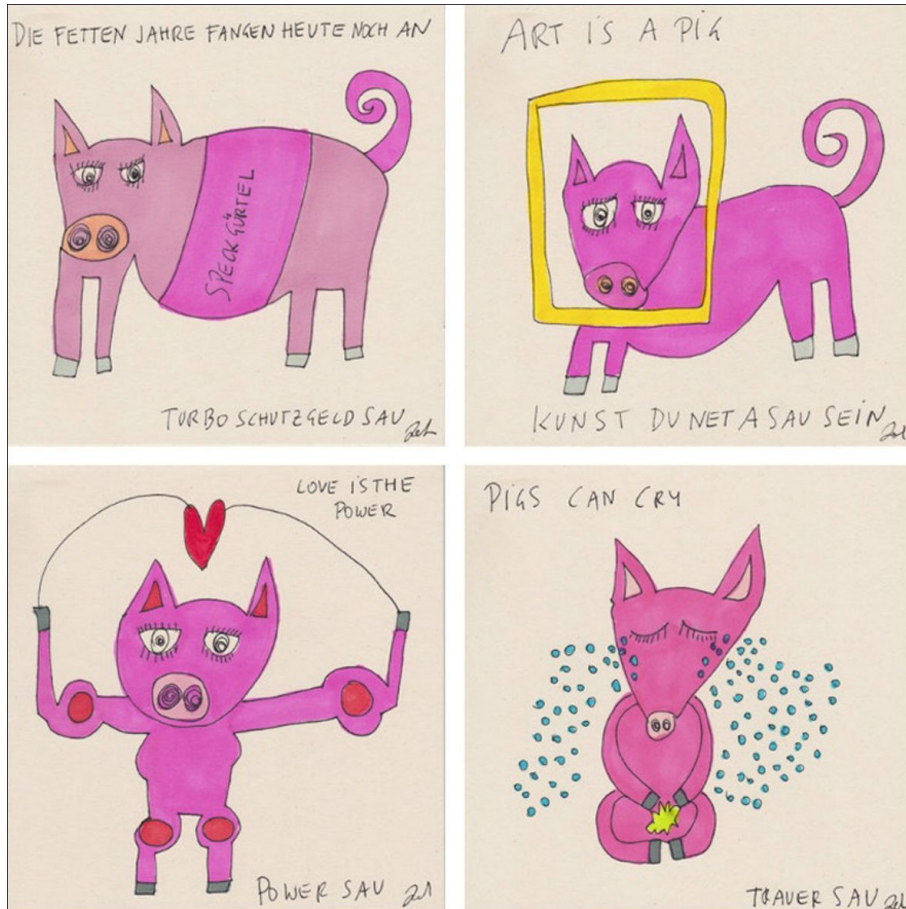 DIE FETTEN JAHRE FANGEN HEUTE NOCH AN
SPECKGÜRTEL
TURBO SCHUTZGELD SAU
ART IS A PIG
KUNST DU NET A SAU SEIN
LOVE IS THE
POWER
POWER SAU
PIGS CAN CRY
TRAUER SAU